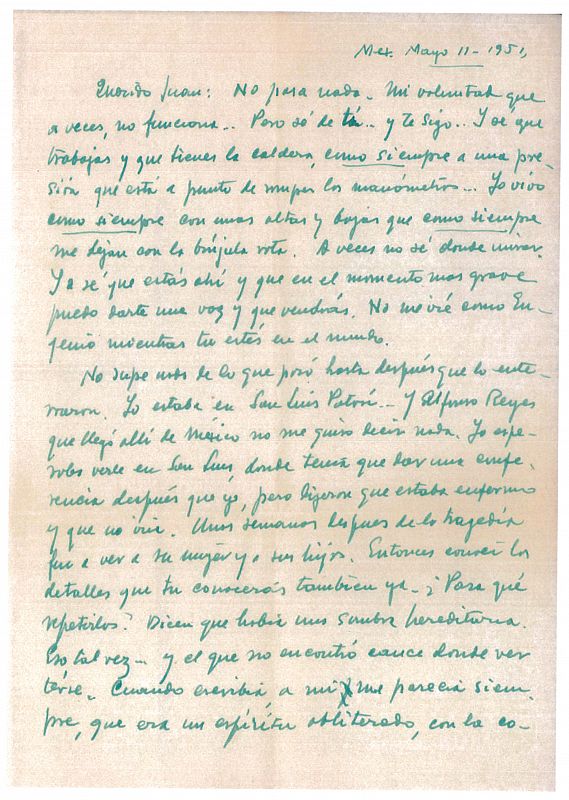 Mex. Mayo 11 - 1951,
Querido Juan: No pasa nada. Mi voluntad que
a veces, no funciona... Pero sé de tí... y te sigo... Ya sé que
trabajas y que tienes la caldera, como siempre a una pre-
sión que está a punto de romper los manómetros... Yo vivo
como siempre con unas altas y bajas que como siempre
me dejan con la brújula rota. A veces no sé donde mirar.
Ya sé que estás ahí y que en el momento mas grave
puedo darte una voz y que vendrás. No me iré como Eu-
genio mientras tu estés en el mundo.
No supe mas de lo que pasó hasta después que lo ente-
rraron. Yo estaba en San Luis Potosí... Y Alfonso Reyes
que llegó allí de México no me quiso decir nada. Yo espe-
raba verle en San Luis, donde tenía que dar una confe-
rencia después que yo, pero dijeron que estaba enfermo
y que no iria. Unas semanas despues de la tragedia
fui a ver a su mujer y a sus hijos. Entonces conocí los
detalles que tu conocerás tambien ya. ¿Para qué
repetirlos? Dicen que habia una sombra hereditaria.
Eso tal vez... y el que no encontró cauce donde ver
terse. Cuando escribia, a mi me parecia siem-
pre, que era un espíritu obliterado, con la co-